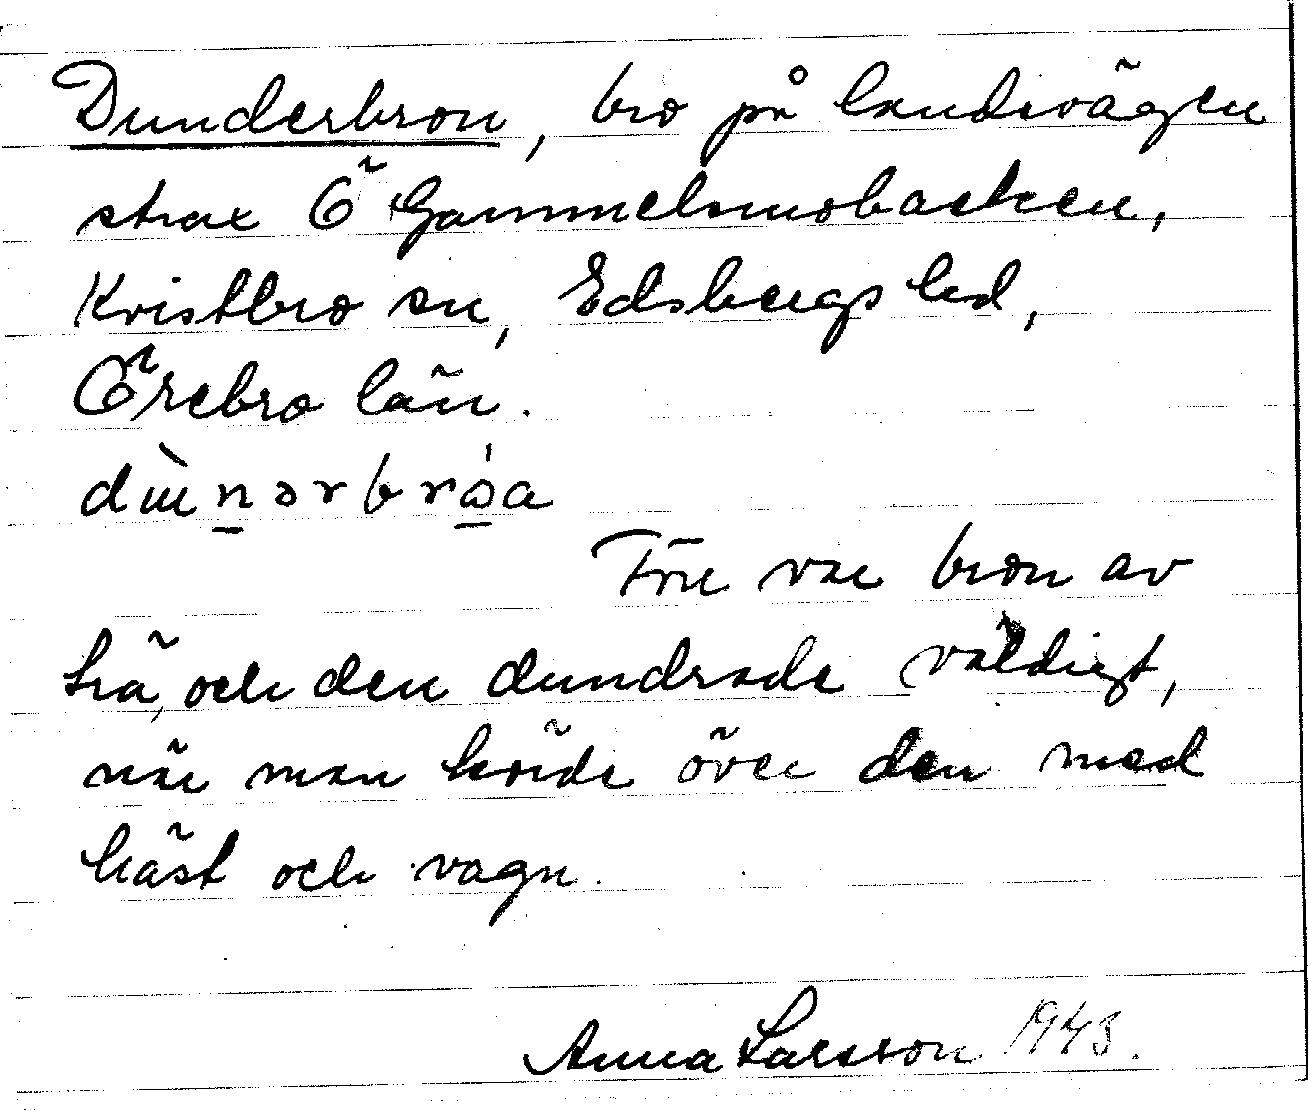 Dunderbron, bro på landsvägen
strax Ö Gammelsmobacken,
Kvistbro sn, Edsbergs hd,
Örebro län.
Förr var bron av
trä, och den dundrade väldigt,
när man körde över den med
häst och vagn.
Anna Larsson 1943.